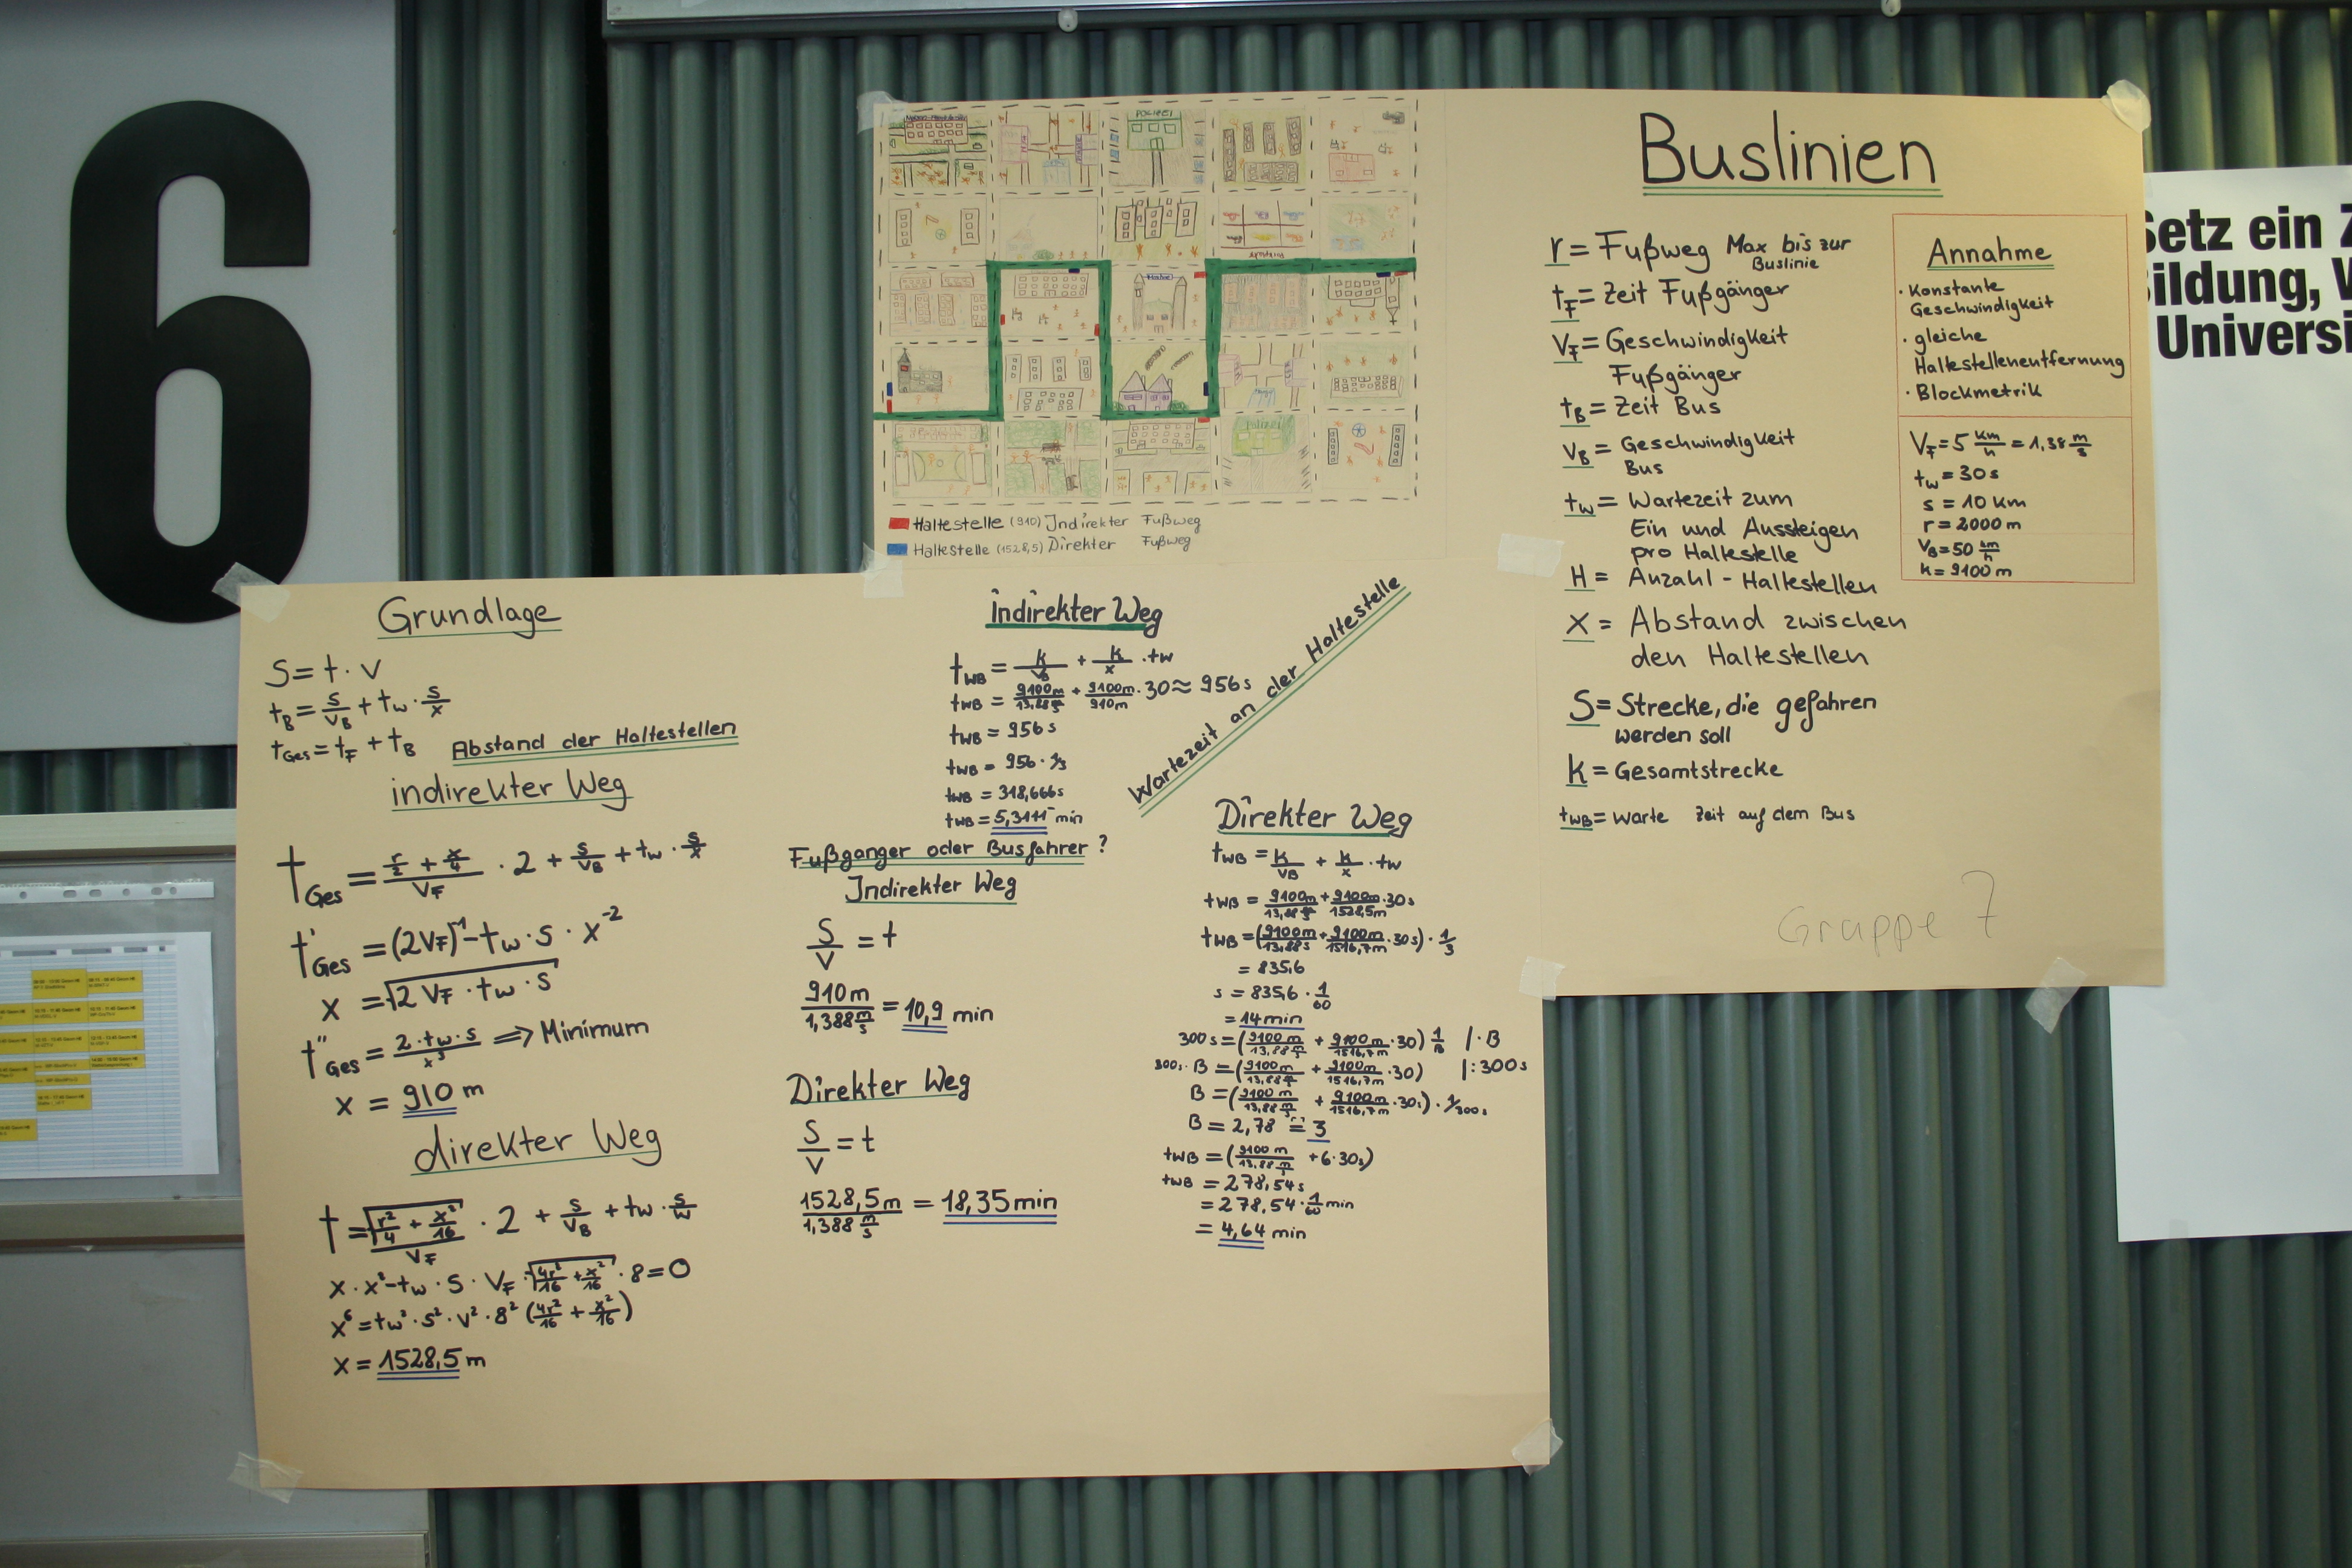 6
POLIZEI
Haltestelle (910) Indirekter Fußweg
Haltestelle (1528,5) Direkter Fußweg
Buslinien
r = Fußweg Max bis zur Buslinie
t_F = Zeit Fußgänger
V_F = Geschwindigkeit
Fußgänger
t_B = Zeit Bus
V_B = Geschwindigkeit
Bus
t_w = Wartezeit zum
Ein und Aussteigen
pro Haltestelle
H = Anzahl - Haltestellen
X = Abstand zwischen
den Haltestellen
S = Strecke, die gefahren
werden soll
k = Gesamtstrecke
t_WB = Warte Zeit auf dem Bus
Annahme
· Konstante
Geschwindigkeit
· gleiche
Haltestellenentfernung
· Blockmetrik
V_F = 5 km/h = 1,38 m/s
t_w = 30 s
s = 10 km
r = 2000 m
V_B = 50 km/h
k = 9100 m
Gruppe 7
Setz ein Z
Bildung, W
Universi
Grundlage
S = t · v
t_B = s/v_B + t_w · s/x
t_Ges = t_F + t_B
Abstand der Haltestellen
indirekter Weg
t_Ges = (r/2 + x/4)/V_F · 2 + s/V_B + t_w · s/x
t'_Ges = (2V_F)^-1 - t_w · s · x^-2
x = √(2 V_F · t_w · s)
t''_Ges = 2·t_w·s/x^3 ⟹ Minimum
x = 910 m
direkter Weg
t = √(r²/4 + x²/16)/V_F · 2 + s/V_B + t_w · s/w
x · x² - t_w · s · V_F · √(4r²/16 + x²/16) · 8 = 0
x^6 = t_w² · s² · v² · 8² (4r²/16 + x²/16)
x = 1528,5 m
indirekter Weg
t_WB = k/V_B + k/x · t_w
t_WB = 9100m/13,88 m/s + 9100m/910m · 30 ≈ 956 s
t_WB = 956 s
t_WB = 956 · 1/3
t_WB = 318,666s
t_WB = 5,3111 min
Wartezeit an der Haltestelle
Fußgänger oder Busfahrer ?
Indirekter Weg
S/V = t
910m/1,388 m/s = 10,9 min
Direkter Weg
S/V = t
1528,5m/1,388 m/s = 18,35 min
Direkter Weg
t_WB = k/V_B + k/x · t_w
t_WB = 9100m/13,88 m/s + 9100m/1528,5m · 30s
t_WB = (9100m/13,88s + 9100m/1516,7m · 30s) · 1/3
= 835,6
s = 835,6 · 1/60
= 14min
300s = (9100m/13,88 m/s + 9100m/1516,7m · 30) 1/B | · B
300s · B = (9100m/13,88 m/s + 9100m/1516,7m · 30) | : 300s
B = (9100m/13,88 m/s + 9100m/1516,7m · 30s) · 1/300s
B = 2,78 = 3
t_WB = (9100m/13,88 m/s + 6·30s)
t_WB = 278,54s
= 278,54 · 1/60 min
= 4,64 min